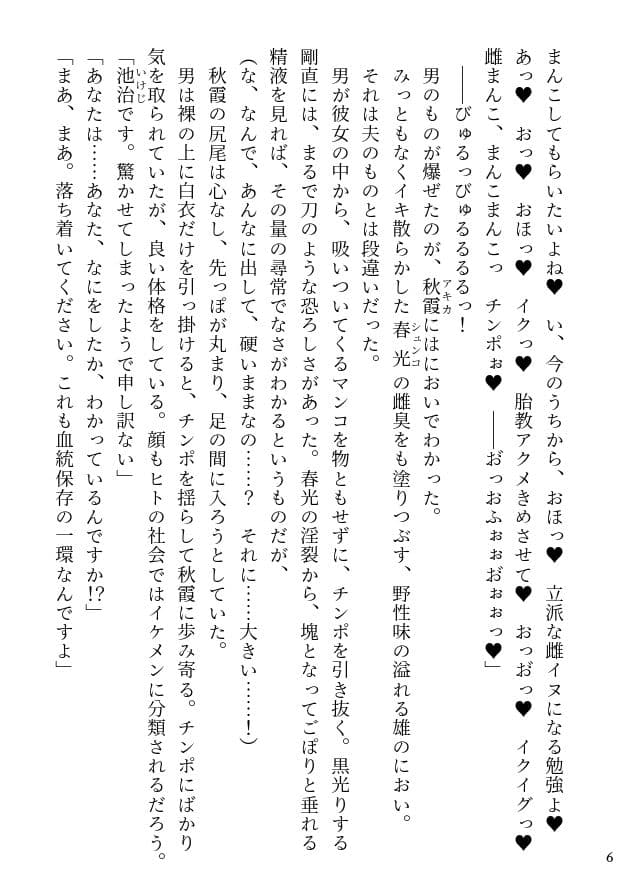 ――びゅるっびゅるるるるっ！
男のものが爆ぜたのが、秋霞にはにおいでわかった。
アキカ
みっともなくイキ散らかした春光の雌臭をも塗りつぶす、野性味の溢れる雄のにおい。
シュンコ
それは夫のものとは段違いだった。
男が彼女の中から、吸いついてくるマンコを物ともせずに、チンポを引き抜く。黒光りする
剛直には、まるで刀のような恐ろしさがあった。春光の淫裂から、塊となってごぽりと垂れる
精液を見れば、その量の尋常でなさがわかるというものだが、
（な、なんで、あんなに出して、硬いままなの……？　それに……大きい……！）
秋霞の尻尾は心なし、先っぽが丸まり、足の間に入ろうとしていた。
男は裸の上に白衣だけを引っ掛けると、チンポを揺らして秋霞に歩み寄る。チンポにばかり
気を取られていたが、良い体格をしている。顔もヒトの社会ではイケメンに分類されるだろう。
「池治です。驚かせてしまったようで申し訳ない」
いけじ
「あなたは……あなた、なにをしたか、わかっているんですか!?」
「まあ、まあ。落ち着いてください。これも血統保存の一環なんですよ」
6